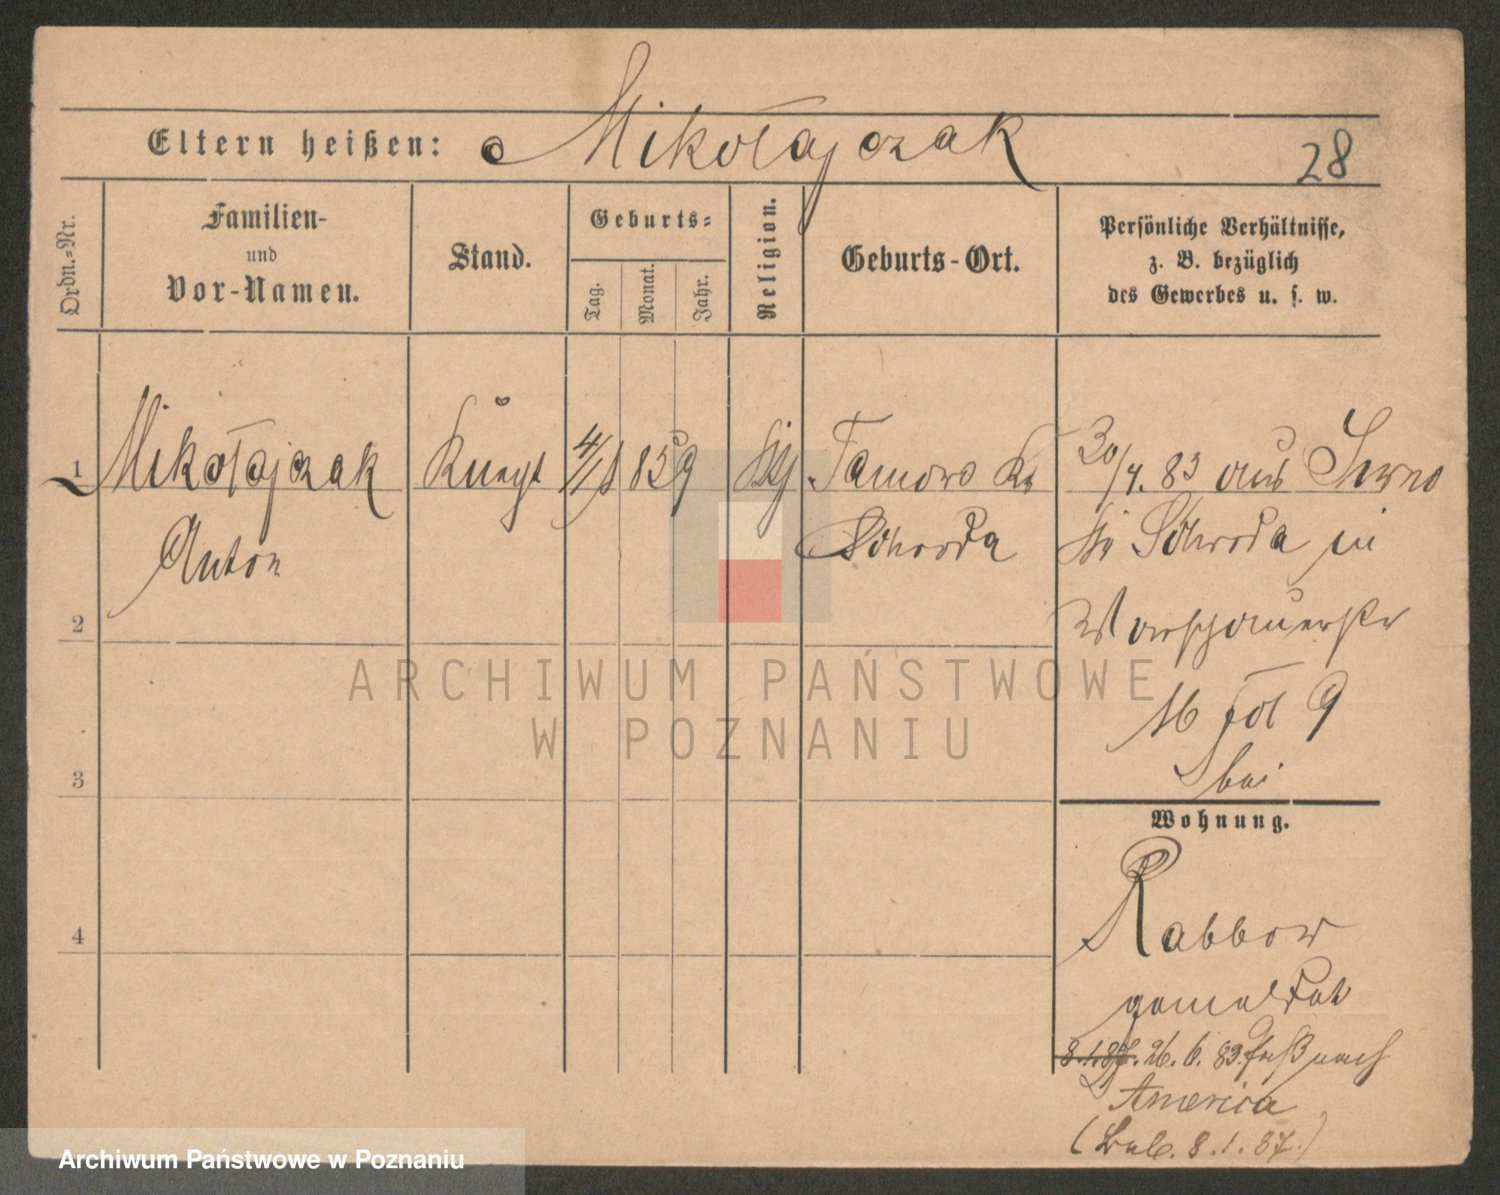 Eltern heißen: Mikołajczak 28
Ordn.-Nr.
Familien-
und
Vor-Namen.
Stand.
Geburts-
Tag.
Monat.
Jahr.
Religion.
Geburts-Ort.
Persönliche Verhältnisse,
z. B. bezüglich
des Gewerbes u. s. w.
1 Mikołajczak Knecht 4/1 1859 kth Tarnowo Kr 30/4. 83 aus
Anton Schroda Kr Schroda in
2 Warschauerstr
16 fol 9
3 bei
Wohnung.
Rabbow
4 gemeldet
8.1.87. 26. 6. 83. nach
America
8. 1. 87.)
ARCHIWUM PAŃSTWOWE
W POZNANIU
Archiwum Państwowe w Poznaniu